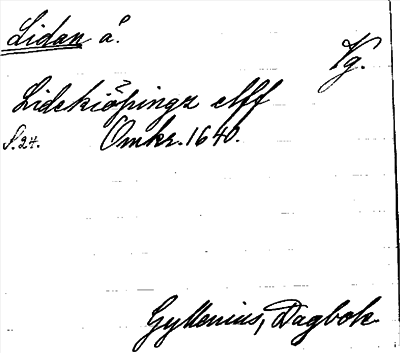 Lidan å.
Vg.
Lidekiöpingz elff
S. 24. Omkr. 1640.
Gyllenius, Dagbok